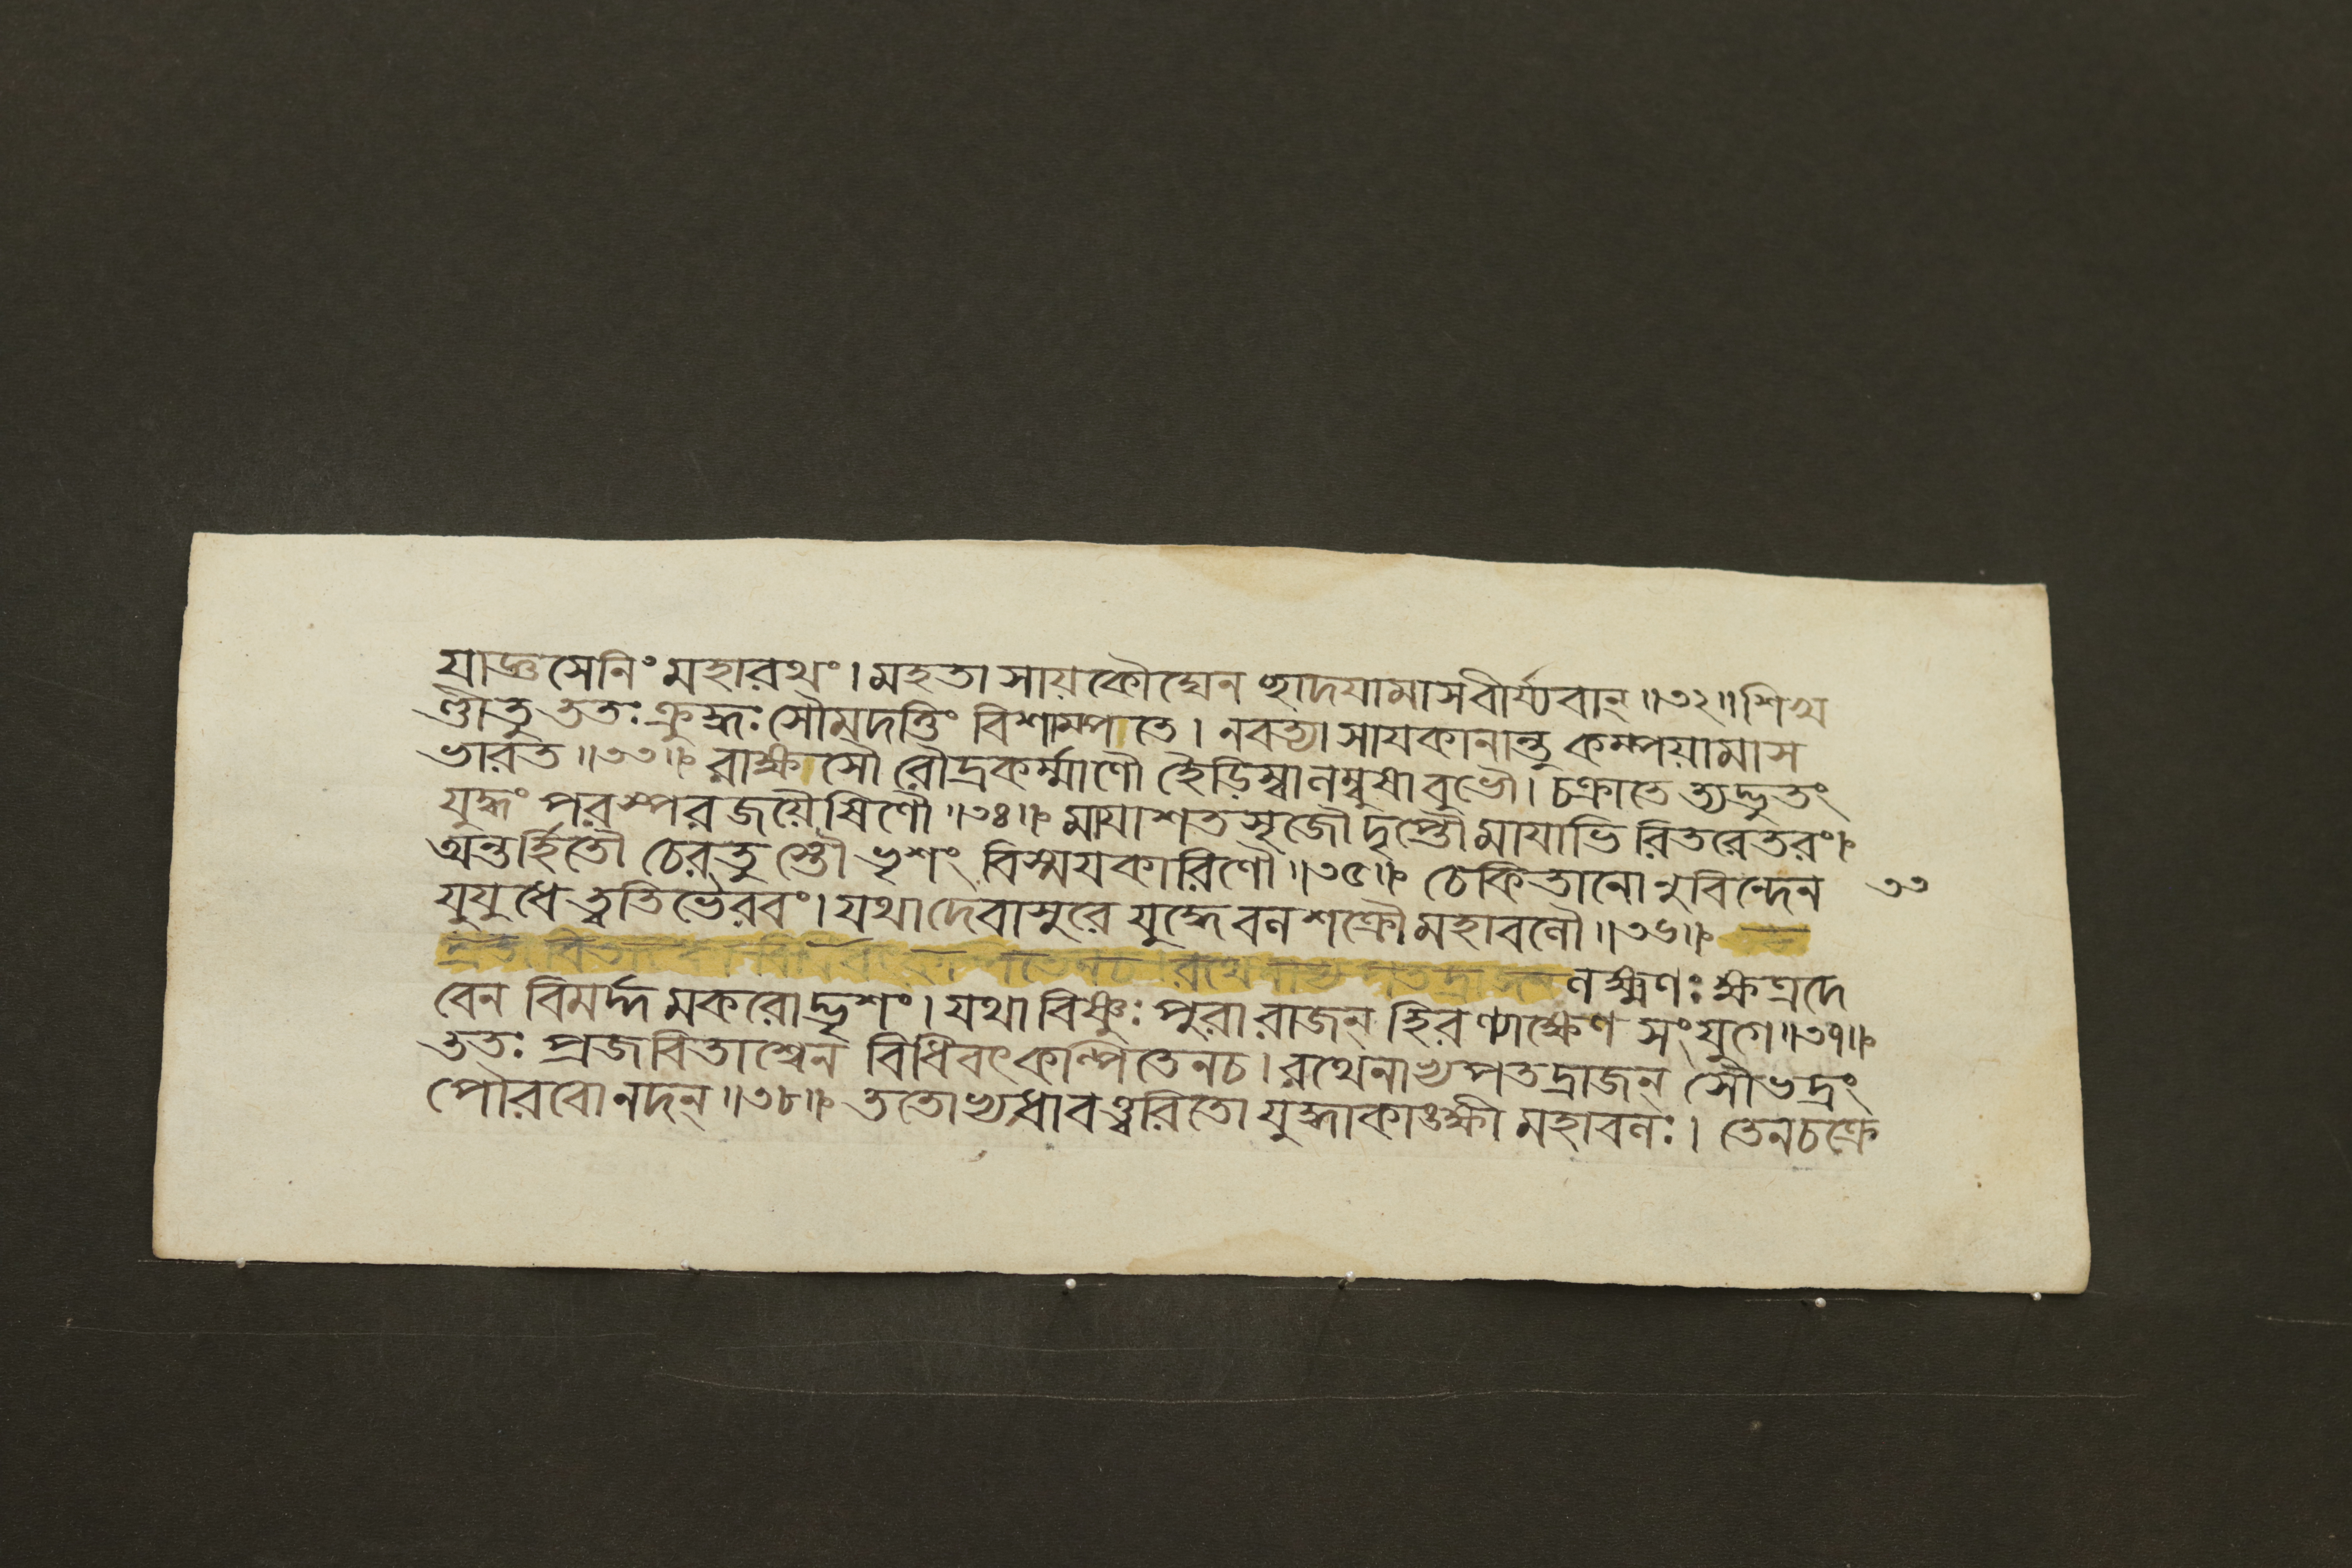 যাজ্ঞসেনিং মহারথং। মহতা সায়কৌঘেন চ্ছাদযামাস বীর্য্যবান্॥৩২॥ শিখ
ণ্ডীতু ততঃ ক্রুদ্ধঃ সৌমদত্তিং বিশাম্পতে। নবত্যা সাযকানান্তু কম্পয়ামাস
ভারত॥৩৩॥ রাক্ষসৌ রৌদ্রকর্ম্মাণৌ হৈড়িম্বালম্বুষাবুভৌ। চক্রাতে ত্যদ্ভুতং
যুদ্ধং পরস্পর জয়ৈষিণৌ॥৩৪॥ মাযাশতসৃজৌ দৃপ্তৌ মাযাভি রিতরেতরং।
অন্তর্হিতৌ চেরতু স্তৌ ভৃশং বিস্ময়কারিণৌ॥৩৫॥ চেকিতানো নুবিন্দেন ৩৩
যুযুধে ত্বতিভৈরবং। যথা দেবাসুরে যুদ্ধে বলশক্রৌ মহাবলৌ॥৩৬॥
প্রজবিতাশ্বেন বিধিবৎকল্পিতেনচ। রথেনাভ্যপতদ্রাজন লক্ষ্মণঃ ক্ষত্রদে
বেন বিমর্দ্দ মকরোদ্ভৃশং। যথা বিষ্ণুঃ পুরা রাজন্ হিরণ্যাক্ষেণ সংযুগে॥৩৭॥
ততঃ প্রজবিতাশ্বেন বিধিবৎকল্পিতেনচ। রথেনাভ্যপতদ্রাজন্ সৌভদ্রং
পৌরবোনদন্॥৩৮॥ ততোভ্যধাবত্ত্বরিতো যুদ্ধাকাঙ্ক্ষী মহাবলঃ। তেনচক্রে